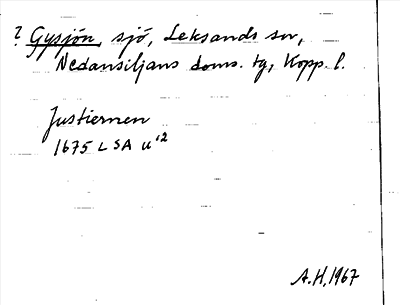 ? Gysjön, sjö, Leksands sn,
Nedansiljans doms. tg, Kopp. l.
Justiernen
1675 LSA U¹²
A.H. 1967